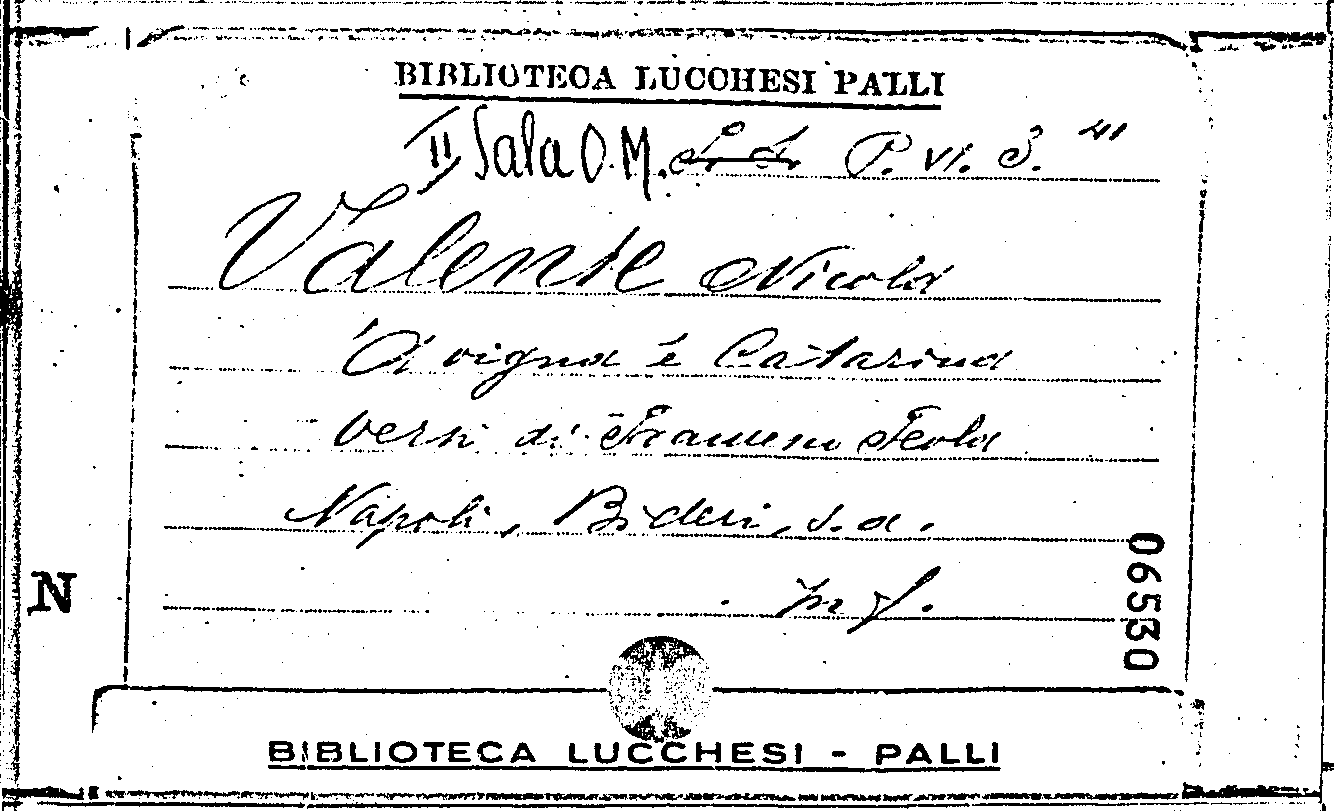 BIBLIOTECA LUCCHESI PALLI
II Sala O.M. P. VI. 3. 41
Valente Nicola
'A vigna 'e Catarina
versi di Francesco Feola
Napoli, Bideri, s.a.
in f.
N
06530
BIBLIOTECA LUCCHESI - PALLI